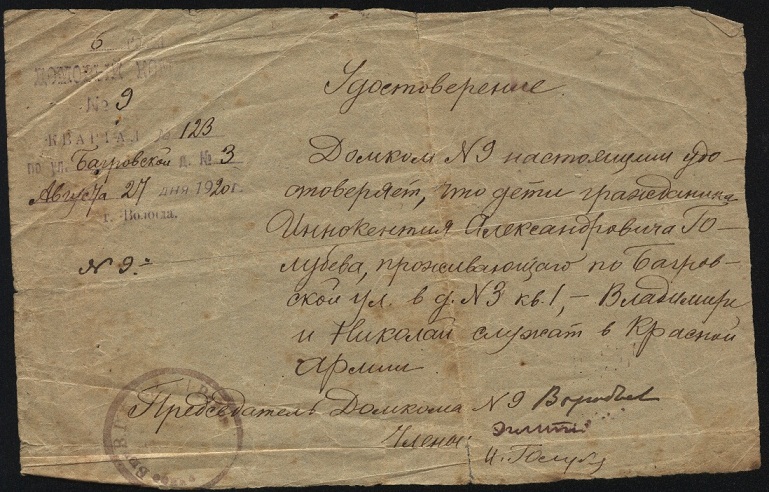 6
ДОМОВЫЙ
№ 9
КВАРТАЛ № 123
по ул. Багровской д. № 3
Августа 27 дня 1920 г.
г. Вологда.
№ 9.=
Удостоверение.
Домком № 9 настоящим удо-
товеряет, что дети гражданина
Иннокентия Александровича Го-
лубева, проживающаго по Багров-
ской ул. в д. № 3 кв. 1, – Владимир
и Николай служат в Красной
Армии.
Председатель Домкома № 9 Воробьев
Члены:
И. Голуб